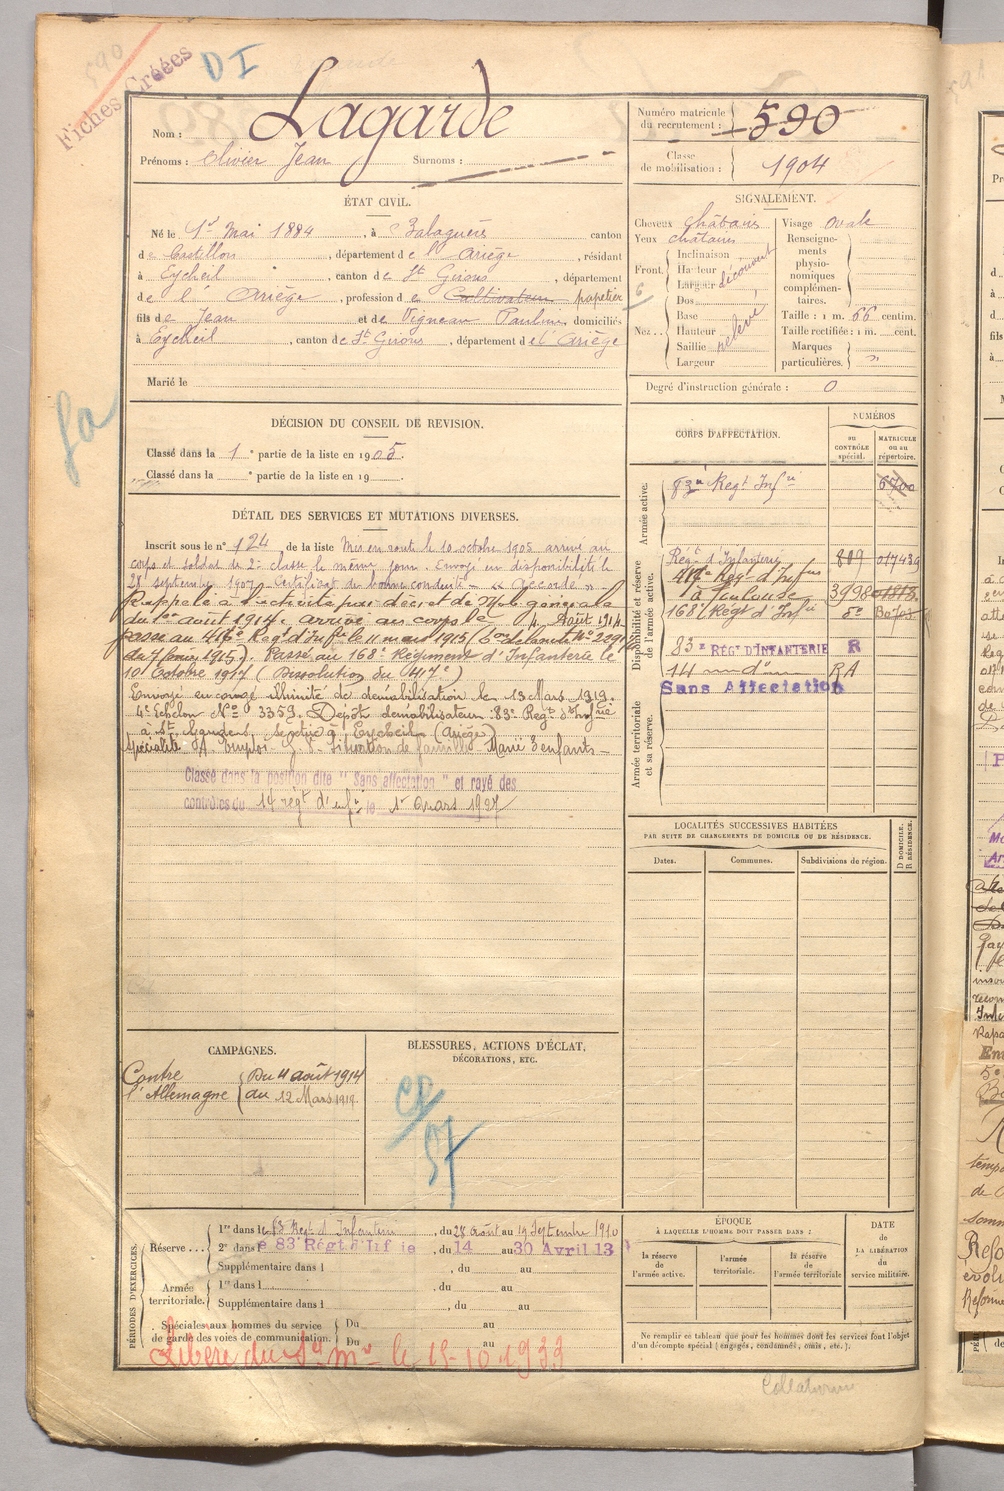 590
Fiches Créées
D I
Nom : Lagarde
Prénoms : Olivier Jean Surnoms :
Numéro matricule du recrutement : 590
Classe de mobilisation : 1904
ÉTAT CIVIL.
Né le 1er Mai 1884, à Balaguères canton
de Castillon, département de l'Ariège, résidant
à Eycheil, canton de St Girons, département
de l'Ariège, profession de Cultivateur papetier
fils de Jean et de Vigneau Pauline domiciliés
à Eycheil, canton de St Girons, département de l'Ariège
Marié le
SIGNALEMENT.
Cheveux châtains Visage ovale
Yeux châtains
Front. Inclinaison
Hauteur
Largeur découvert
Nez... Dos
Base
Hauteur relevé
Saillie
Largeur
Renseignements physionomiques complémentaires.
Taille : 1 m. 66 centim.
Taille rectifiée : 1 m. cent.
Marques particulières. "
Degré d'instruction générale : 0
DÉCISION DU CONSEIL DE REVISION.
Classé dans la 1e partie de la liste en 1905.
Classé dans la e partie de la liste en 19
DÉTAIL DES SERVICES ET MUTATIONS DIVERSES.
Inscrit sous le n° 124 de la liste Mis en route le 10 octobre 1905 arrivé au
corps et soldat de 2e classe le même jour. Envoyé en disponibilité le
28 septembre 1907. Certificat de bonne conduite « accordé »
Rappelé à l'activité par décret de Mob générale
du 1er août 1914. arrivé au corps le 4 Août 1914.
passé au 417e Régt d'Inf le 11 mars 1915
du 7 février 1915). Passé au 168e Régiment d'Infanterie le
10 Octobre 1917 (Dissolution du 417e)
Envoyé en congé illimité de démobilisation le 13 Mars 1919.
4e Echelon No 3359. Dépôt démobilisateur 83e Régt d'Infrie
à St Gaudens, se retire à Eycheil (Ariège)
Spécialité A. Emploi Situation de famille Marié 3 enfants
Classé dans la position dite "Sans affectation" et rayé des
contrôles du 14 régt d'inf. le 1er Mars 1927
CORPS D'AFFECTATION.
NUMÉROS
au contrôle spécial.
MATRICULE ou au répertoire.
Armée active.
83e Régt Infrie 6700
Disponibilité et réserve de l'armée active.
Régt d'Infanterie 809 017439
417e Régt d'Infrie
à Toulouse 3998
168e Régt d'Infie do
83e RÉGt D'INFANTERIE R
14 — do — RA
Sans Affectation
Armée territoriale et sa réserve.
LOCALITÉS SUCCESSIVES HABITÉES
PAR SUITE DE CHANGEMENTS DE DOMICILE OU DE RÉSIDENCE.
Dates. Communes. Subdivisions de région. D DOMICILE. R RÉSIDENCE.
CAMPAGNES.
Contre l'Allemagne
Du 4 août 1914
au 12 Mars 1919.
BLESSURES, ACTIONS D'ÉCLAT,
DÉCORATIONS, ETC.
PÉRIODES D'EXERCICES.
Réserve... 1re dans le 83 Régt d'Infanterie, du 28 Août au 19 Septembre 1910
2e dans le 83 Régt d'Infie, du 14 au 30 Avril 13
Supplémentaire dans l , du au
Armée territoriale. 1re dans l , du au
Supplémentaire dans l , du au
Spéciales aux hommes du service de garde des voies de communication. Du au
Du au
Libéré du S. M. le 15-10-1933
ÉPOQUE
À LAQUELLE L'HOMME DOIT PASSER DANS :
la réserve de l'armée active.
l'armée territoriale.
la réserve de l'armée territoriale
DATE DE LA LIBÉRATION du service militaire.
Ne remplir ce tableau que pour les hommes dont les services font l'objet
d'un décompte spécial (engagés, condamnés, omis, etc.).